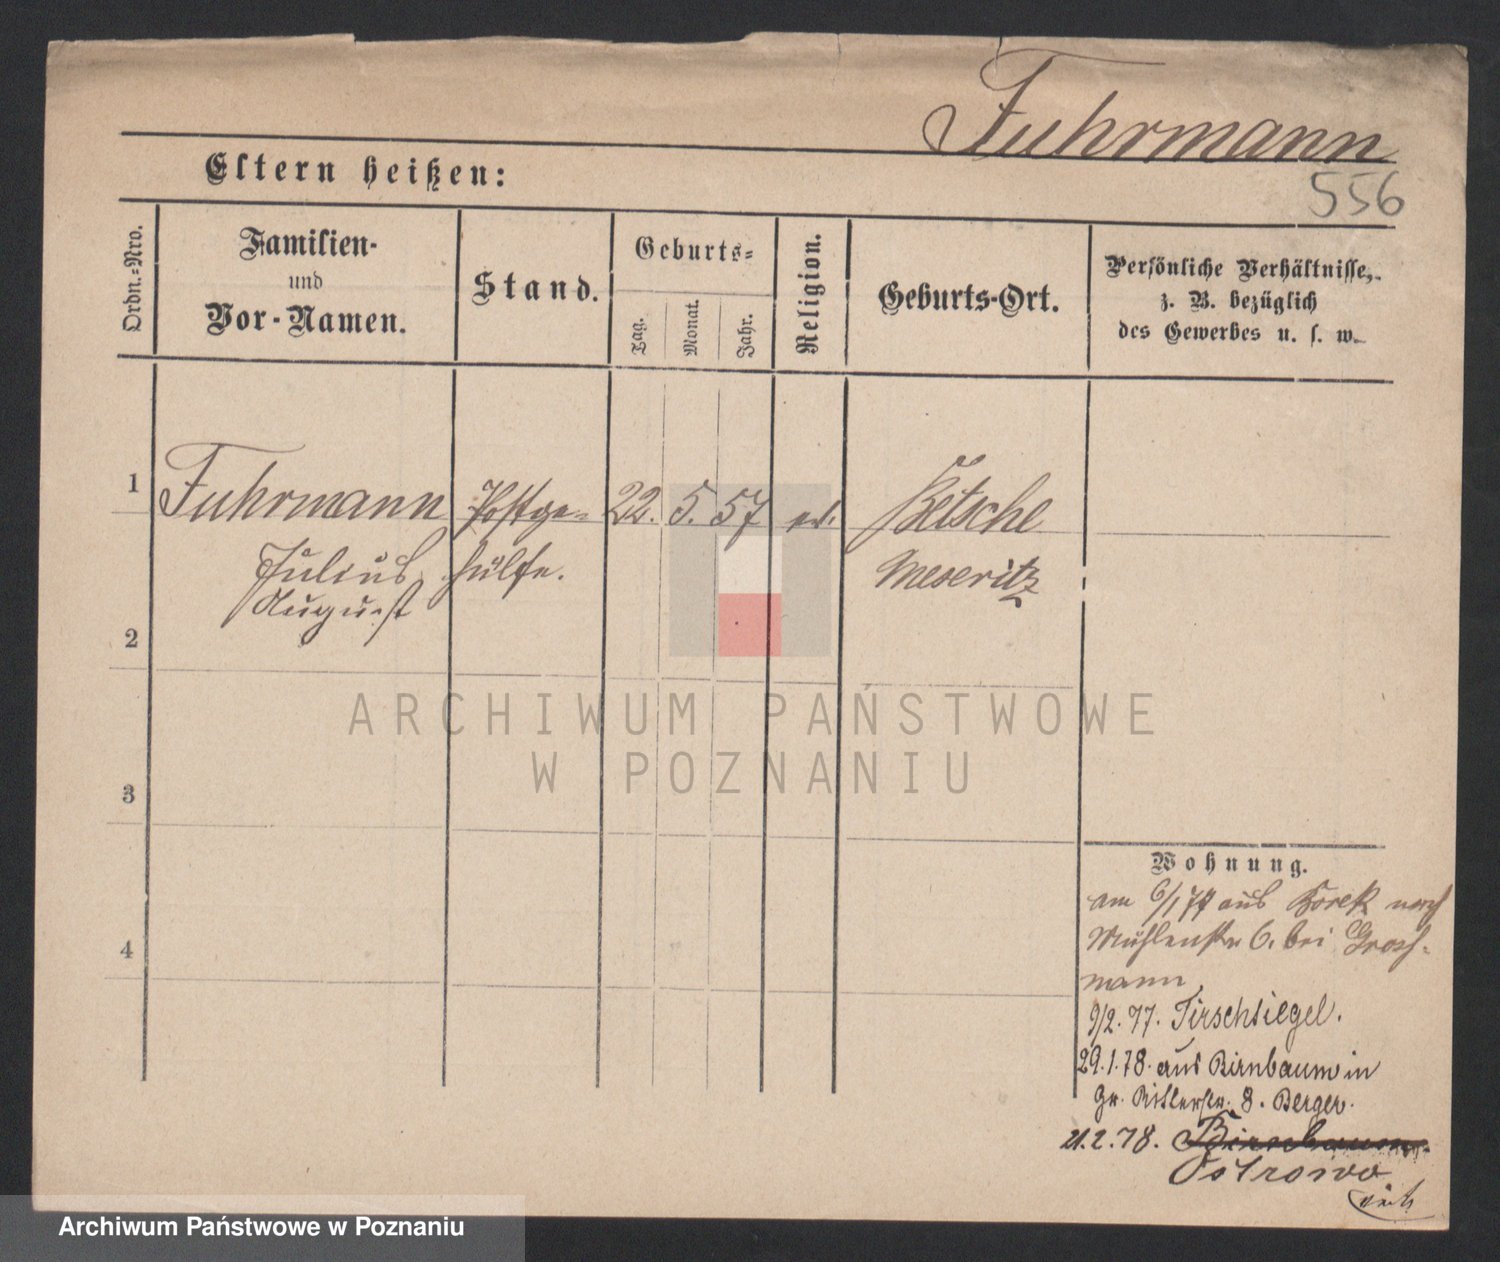 Fuhrmann
556
Eltern heißen:
Ordn.-Nro.
Familien-
und
Vor-Namen.
Stand.
Geburts-
Tag.
Monat.
Jahr.
Religion.
Geburts-Ort.
Persönliche Verhältnisse,
z. B. bezüglich
des Gewerbes u. s. w.
1 Fuhrmann Postge= 22. 5. 57 ev. Betsche
Julius hülfe. Meseritz
August
2
3
4
Wohnung.
am 6/1 77 aus Borek nach
Mühlenstr 6. bei Gross-
mann
9/2. 77. Tirschtiegel.
29.1.78. aus Birnbaum in
Gr. Ritterstr. 8. Berger.
21.2.78. Birnbaum
Ostrowo
ARCHIWUM PAŃSTWOWE
W POZNANIU
Archiwum Państwowe w Poznaniu